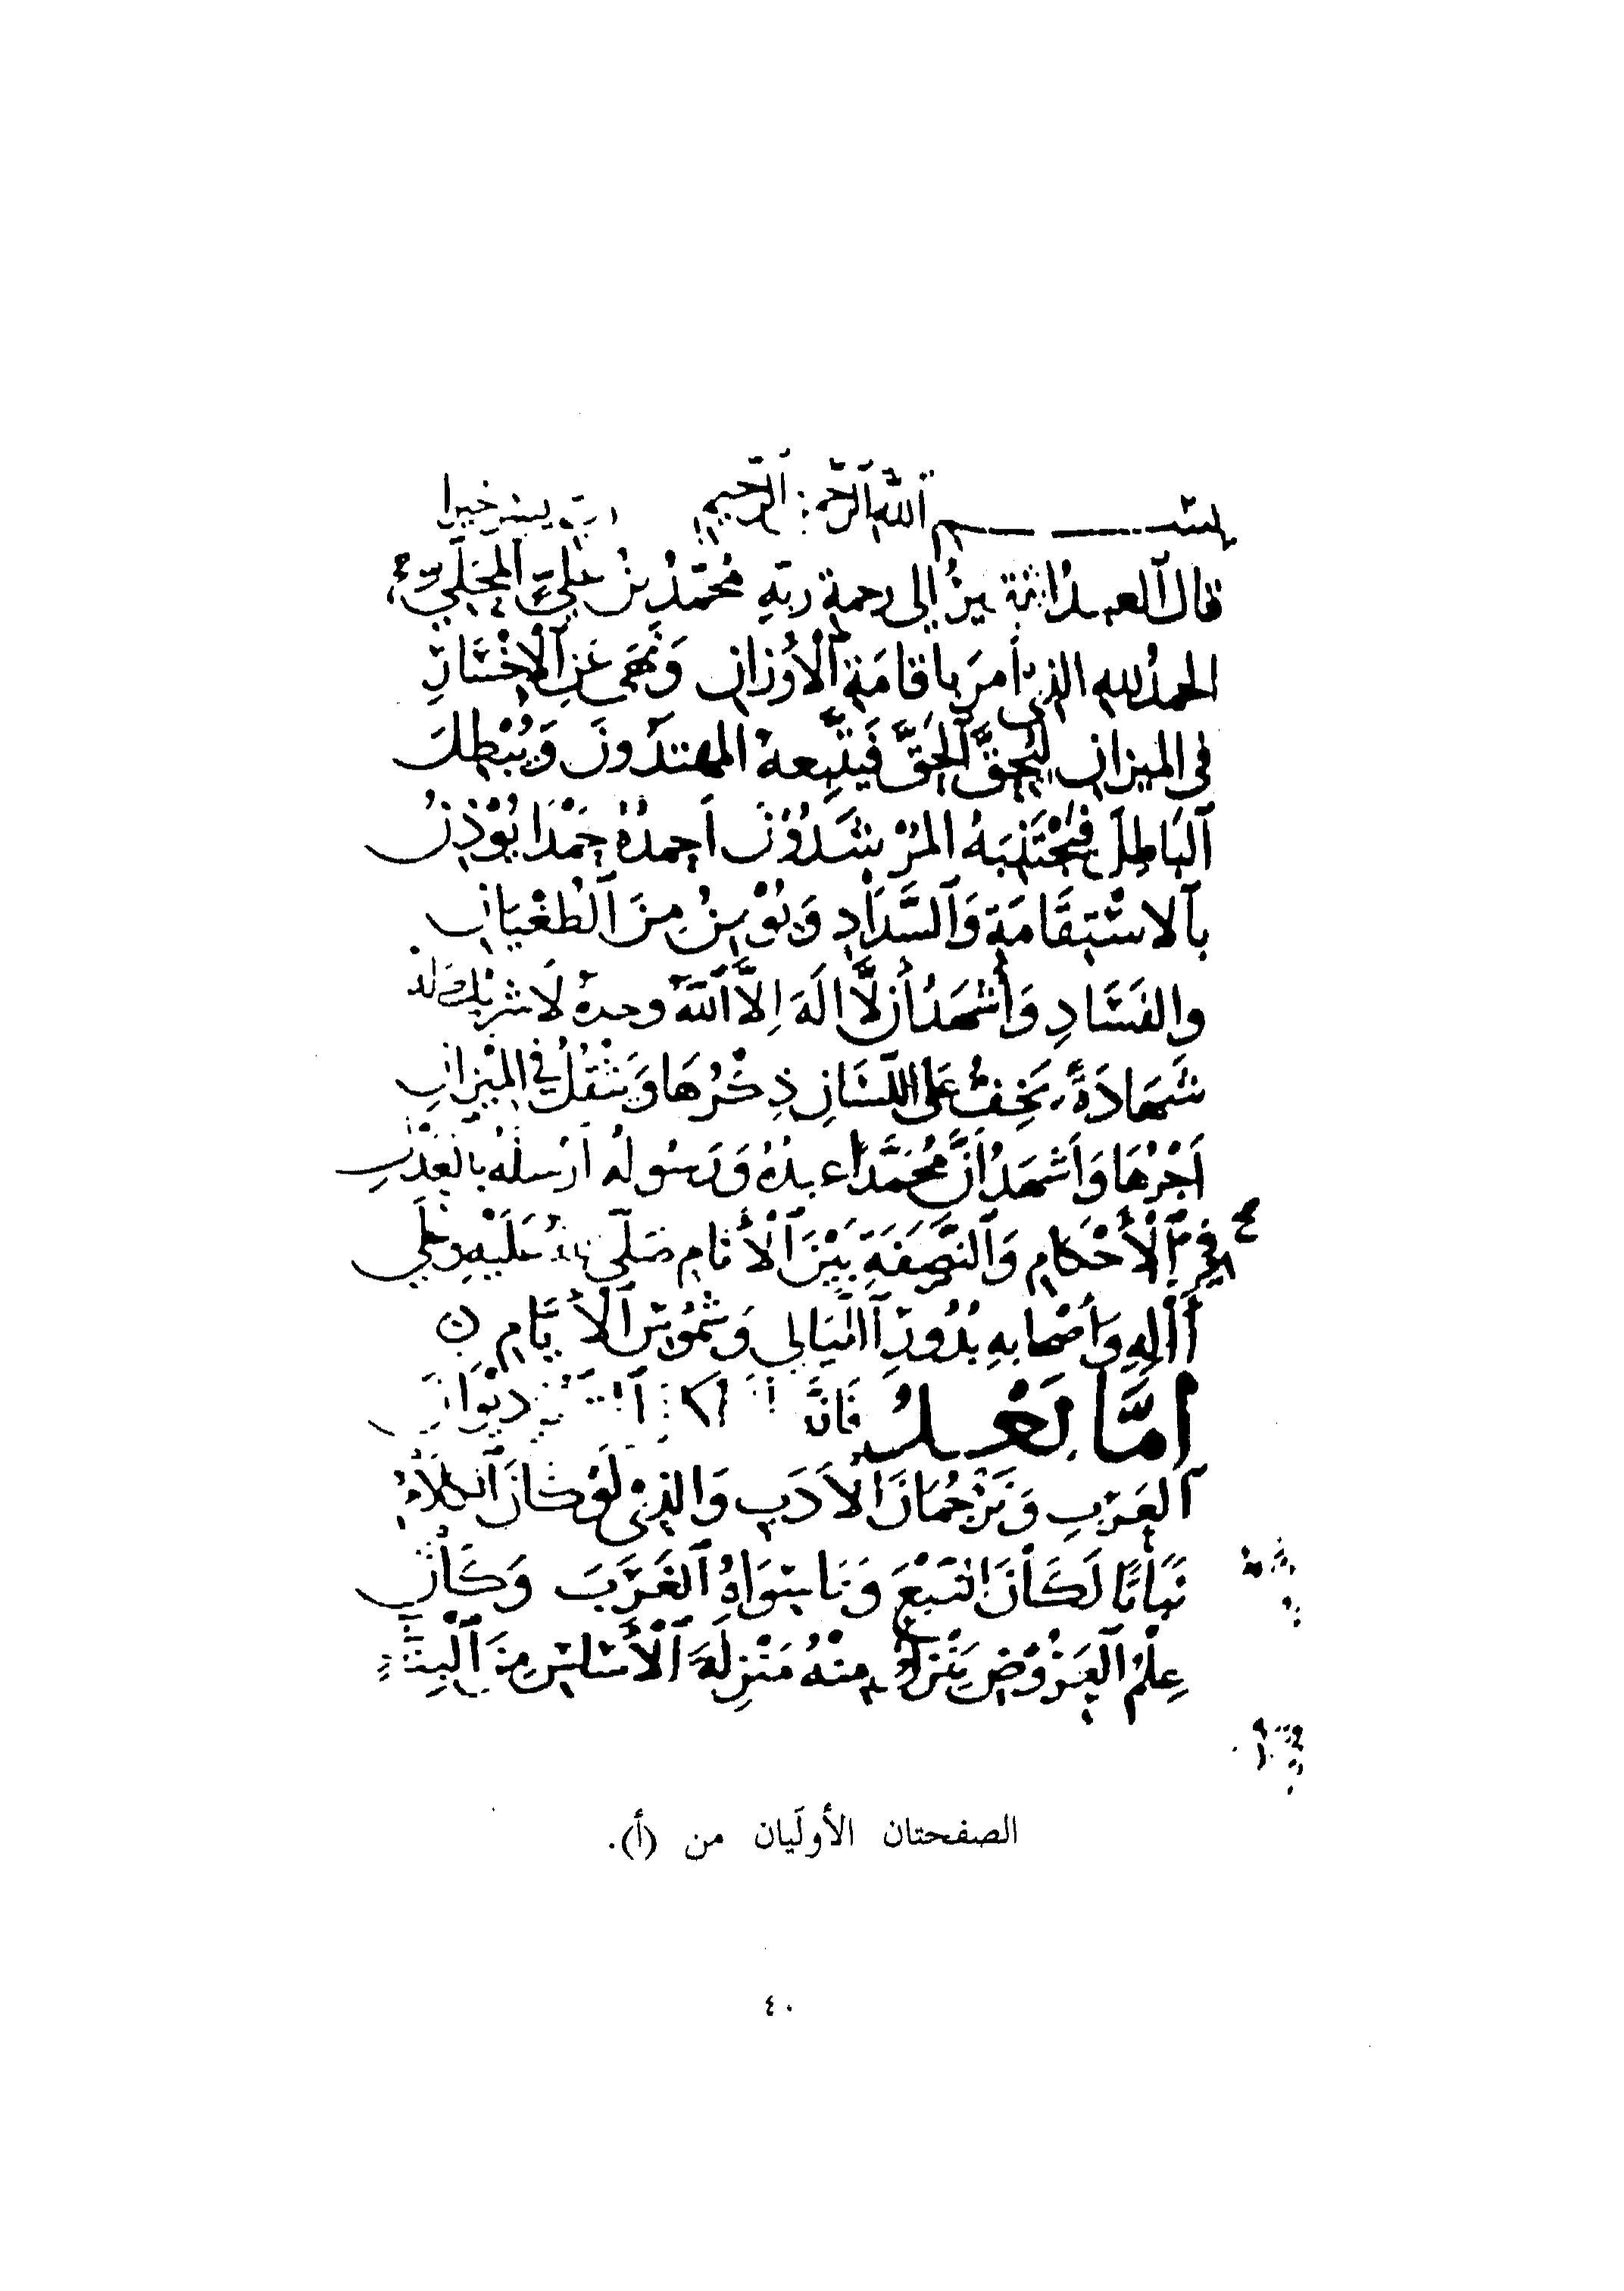 بسم الله الرحمن الرحيم رب يسر خيرا
قال العبد الفقير إلى رحمة ربه محمد بن علي المحلي
الحمد لله الذي أمر بإقامة الأوزان ونهى عن الإخسار
في الميزان ليحق الحق فيتبعه المهتدون ويبطل
الباطل فيجتنبه المرشدون أحمده حمدا يؤذن
بالاستقامة والسداد ويؤمن من الطغيان
والفساد وأشهد أن لا إله إلا الله وحده لا شريك له
شهادة يخف على اللسان ذكرها ويثقل في الميزان
أجرها وأشهد أن محمدا عبده ورسوله أرسله بالعدل
في الأحكام والنصفة بين الأنام صلى الله عليه وعلى
آله وأصحابه بدور الليالي وشموس الأيام
أما بعد فإن ديوان
العرب وترجمان الأدب والذي لو كان الكلام
نباتا لكان النبع وما سواه الغرب وكان
علم العروض ينزل منه منزلة الأساس من البناء
الصفحتان الأولَيان من (أ).
٤٠